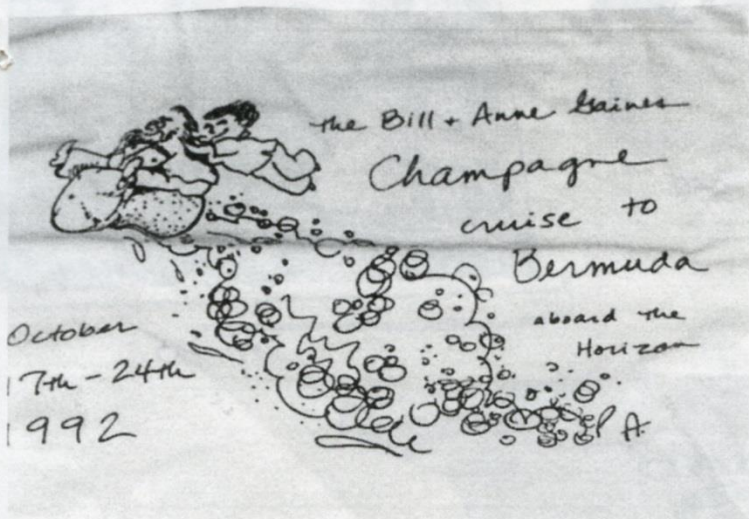 the Bill + Anne Gaines
Champagne
cruise to
Bermuda
aboard the
Horizon
October
17th - 24th
1992